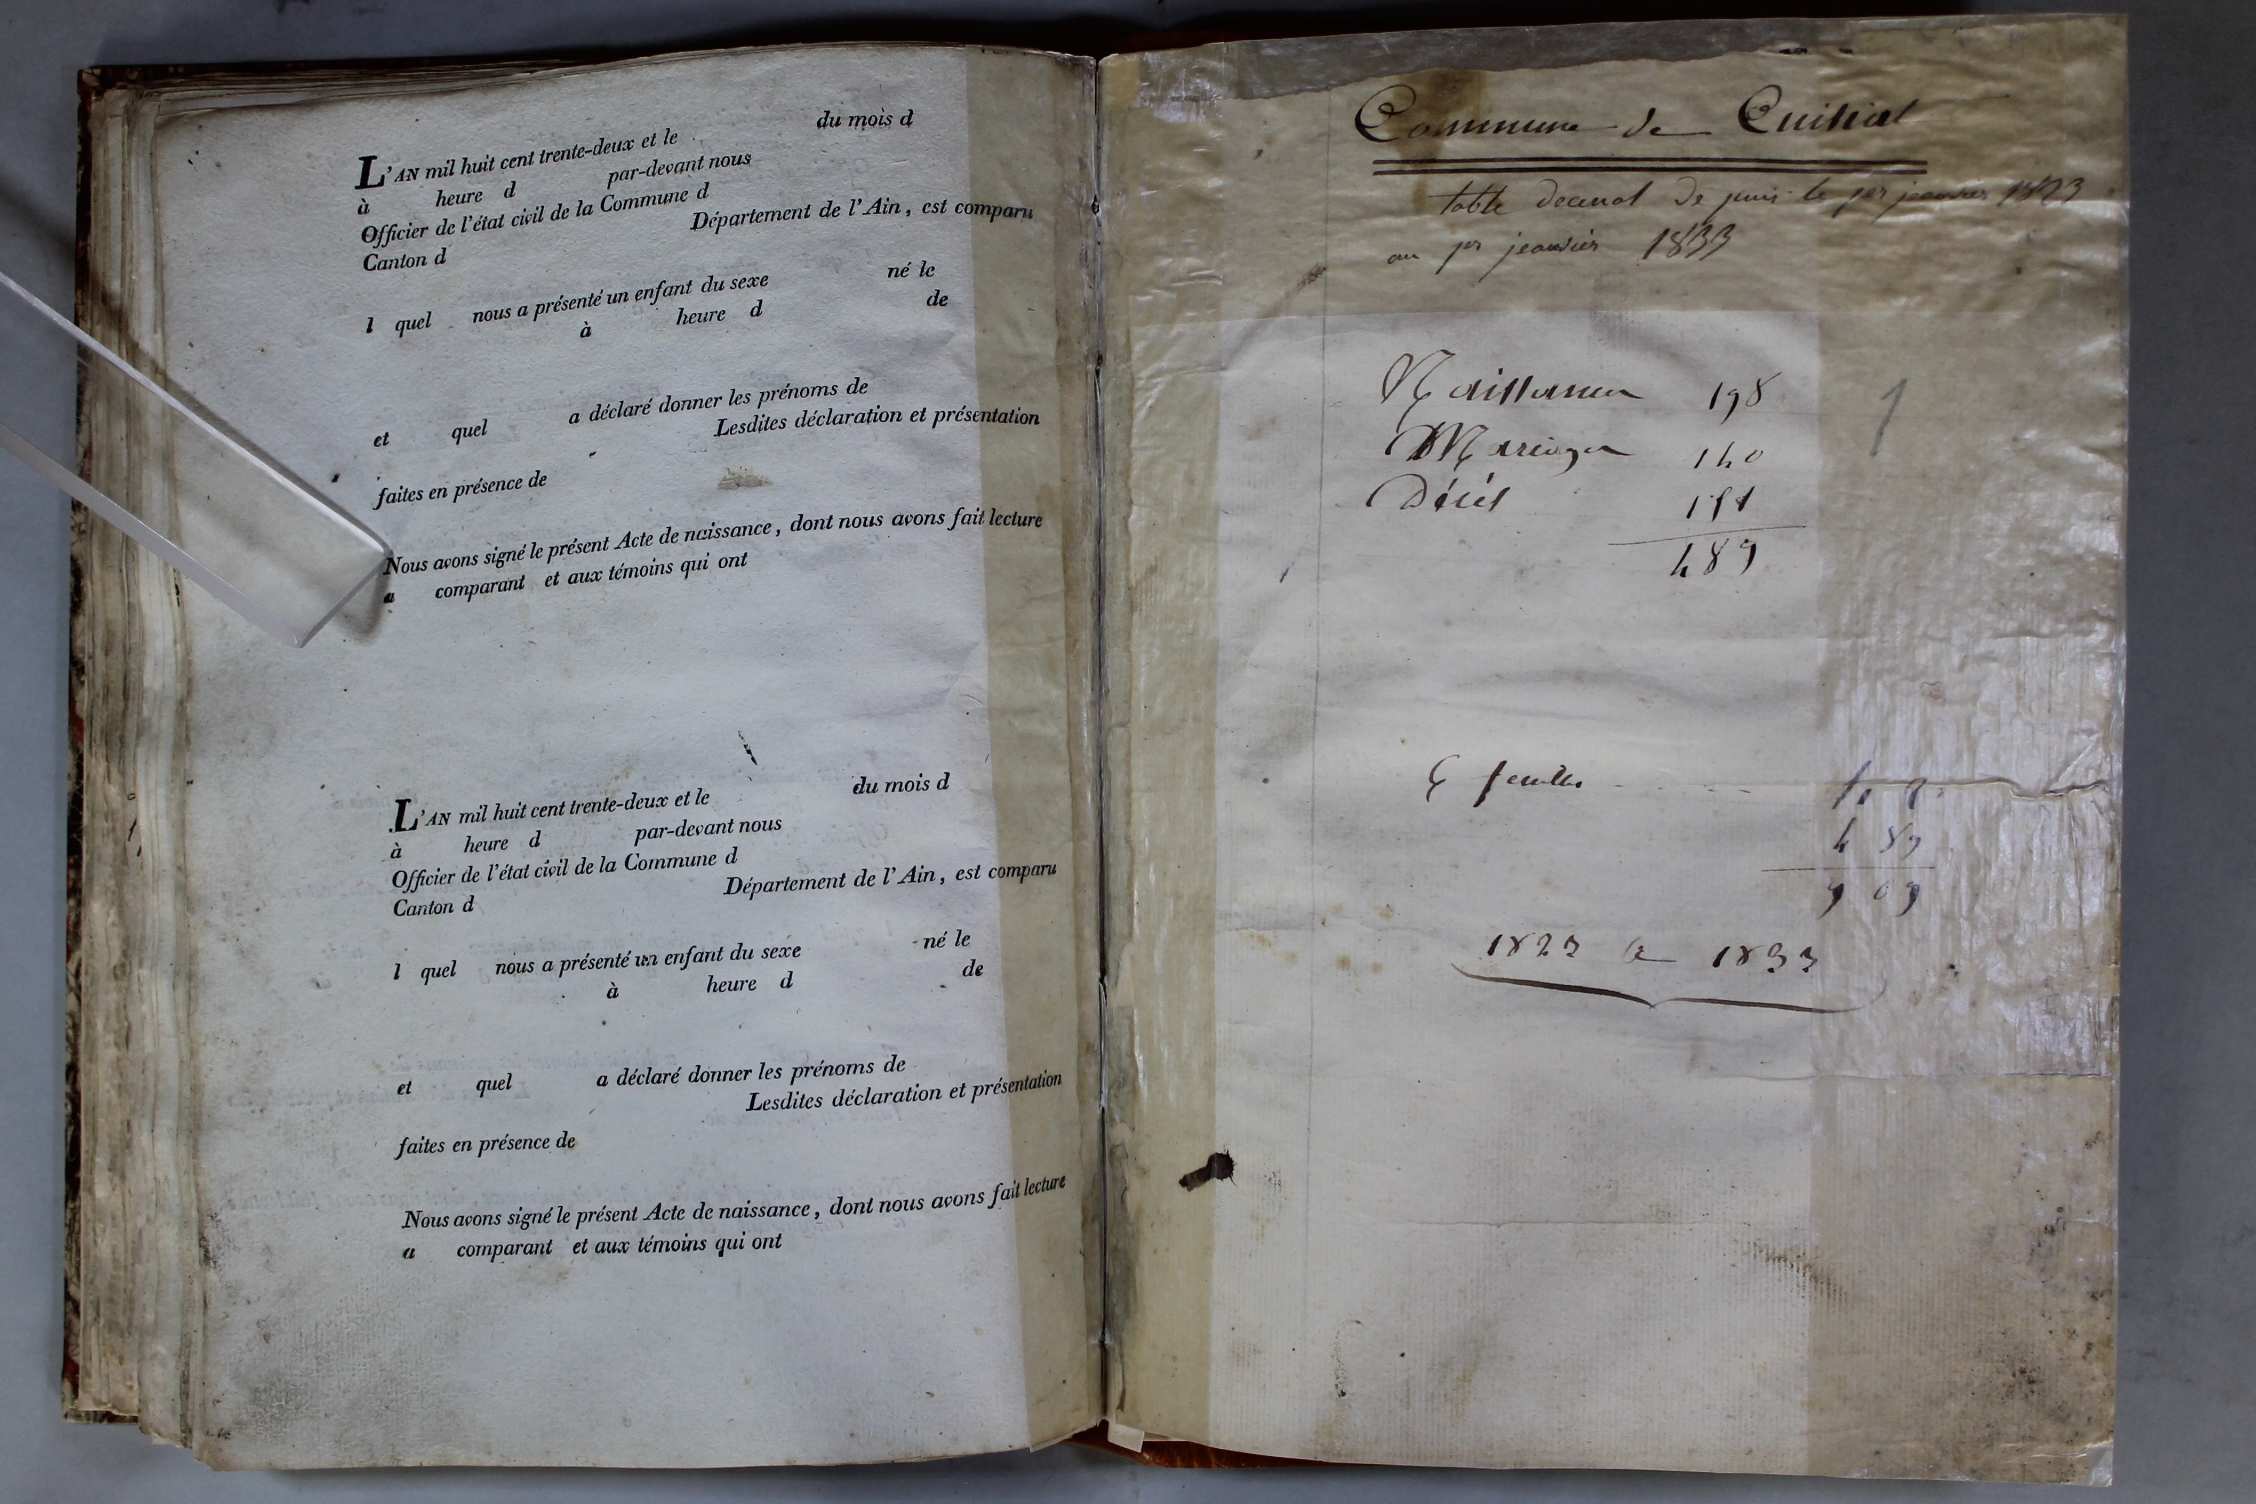 du mois d
L'AN mil huit cent trente-deux et le
à heure d par-devant nous
Officier de l'état civil de la Commune d
Canton d Département de l'Ain, est comparu
né le
l quel nous a présenté un enfant du sexe
à heure d de
et quel a déclaré donner les prénoms de
Lesdites déclaration et présentation
faites en présence de
Nous avons signé le présent Acte de naissance, dont nous avons fait lecture
a comparant et aux témoins qui ont
L'AN mil huit cent trente-deux et le du mois d
à heure d par-devant nous
Officier de l'état civil de la Commune d
Canton d Département de l'Ain, est comparu
l quel nous a présenté un enfant du sexe né le
à heure d de
et quel a déclaré donner les prénoms de
Lesdites déclaration et présentation
faites en présence de
Nous avons signé le présent Acte de naissance, dont nous avons fait lecture
a comparant et aux témoins qui ont
Commune de Cuisiat
table decenal de puis le per jeanvier 1823
au per jeanvier 1833
Naissances 198
Mariages 140
Décès 151
489
1
6 feuilles
4 89
9 09
1823 a 1833